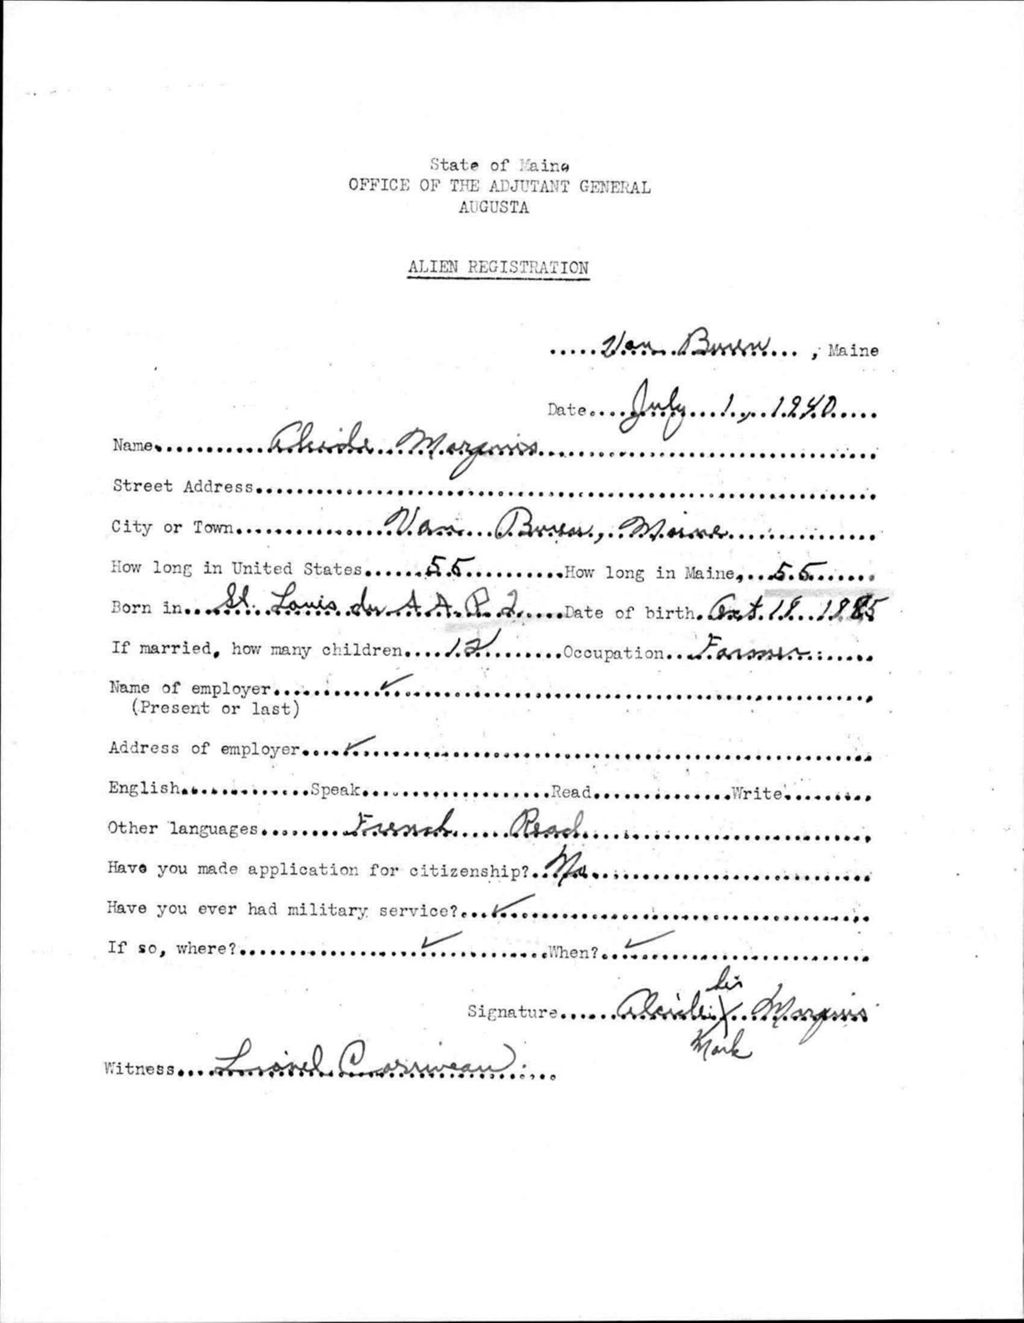 State of Maine
OFFICE OF THE ADJUTANT GENERAL
AUGUSTA
ALIEN REGISTRATION
Van Buren, Maine
Date July 1, 1940
Name Alcide Marquis
Street Address
City or Town Van Buren, Maine
How long in United States 55 How long in Maine 55
Born in St. Louis du HA. HA. P. Q. Date of birth Oct. 18 1885
If married, how many children 12 Occupation Farmer
Name of employer ✓
(Present or last)
Address of employer ✓
English Speak Read Write
Other languages French Read
Have you made application for citizenship? No
Have you ever had military service? ✓
If so, where? ✓ When? ✓
his
Signature Alcide X Marquis
Mark
Witness Lionel Corriveau